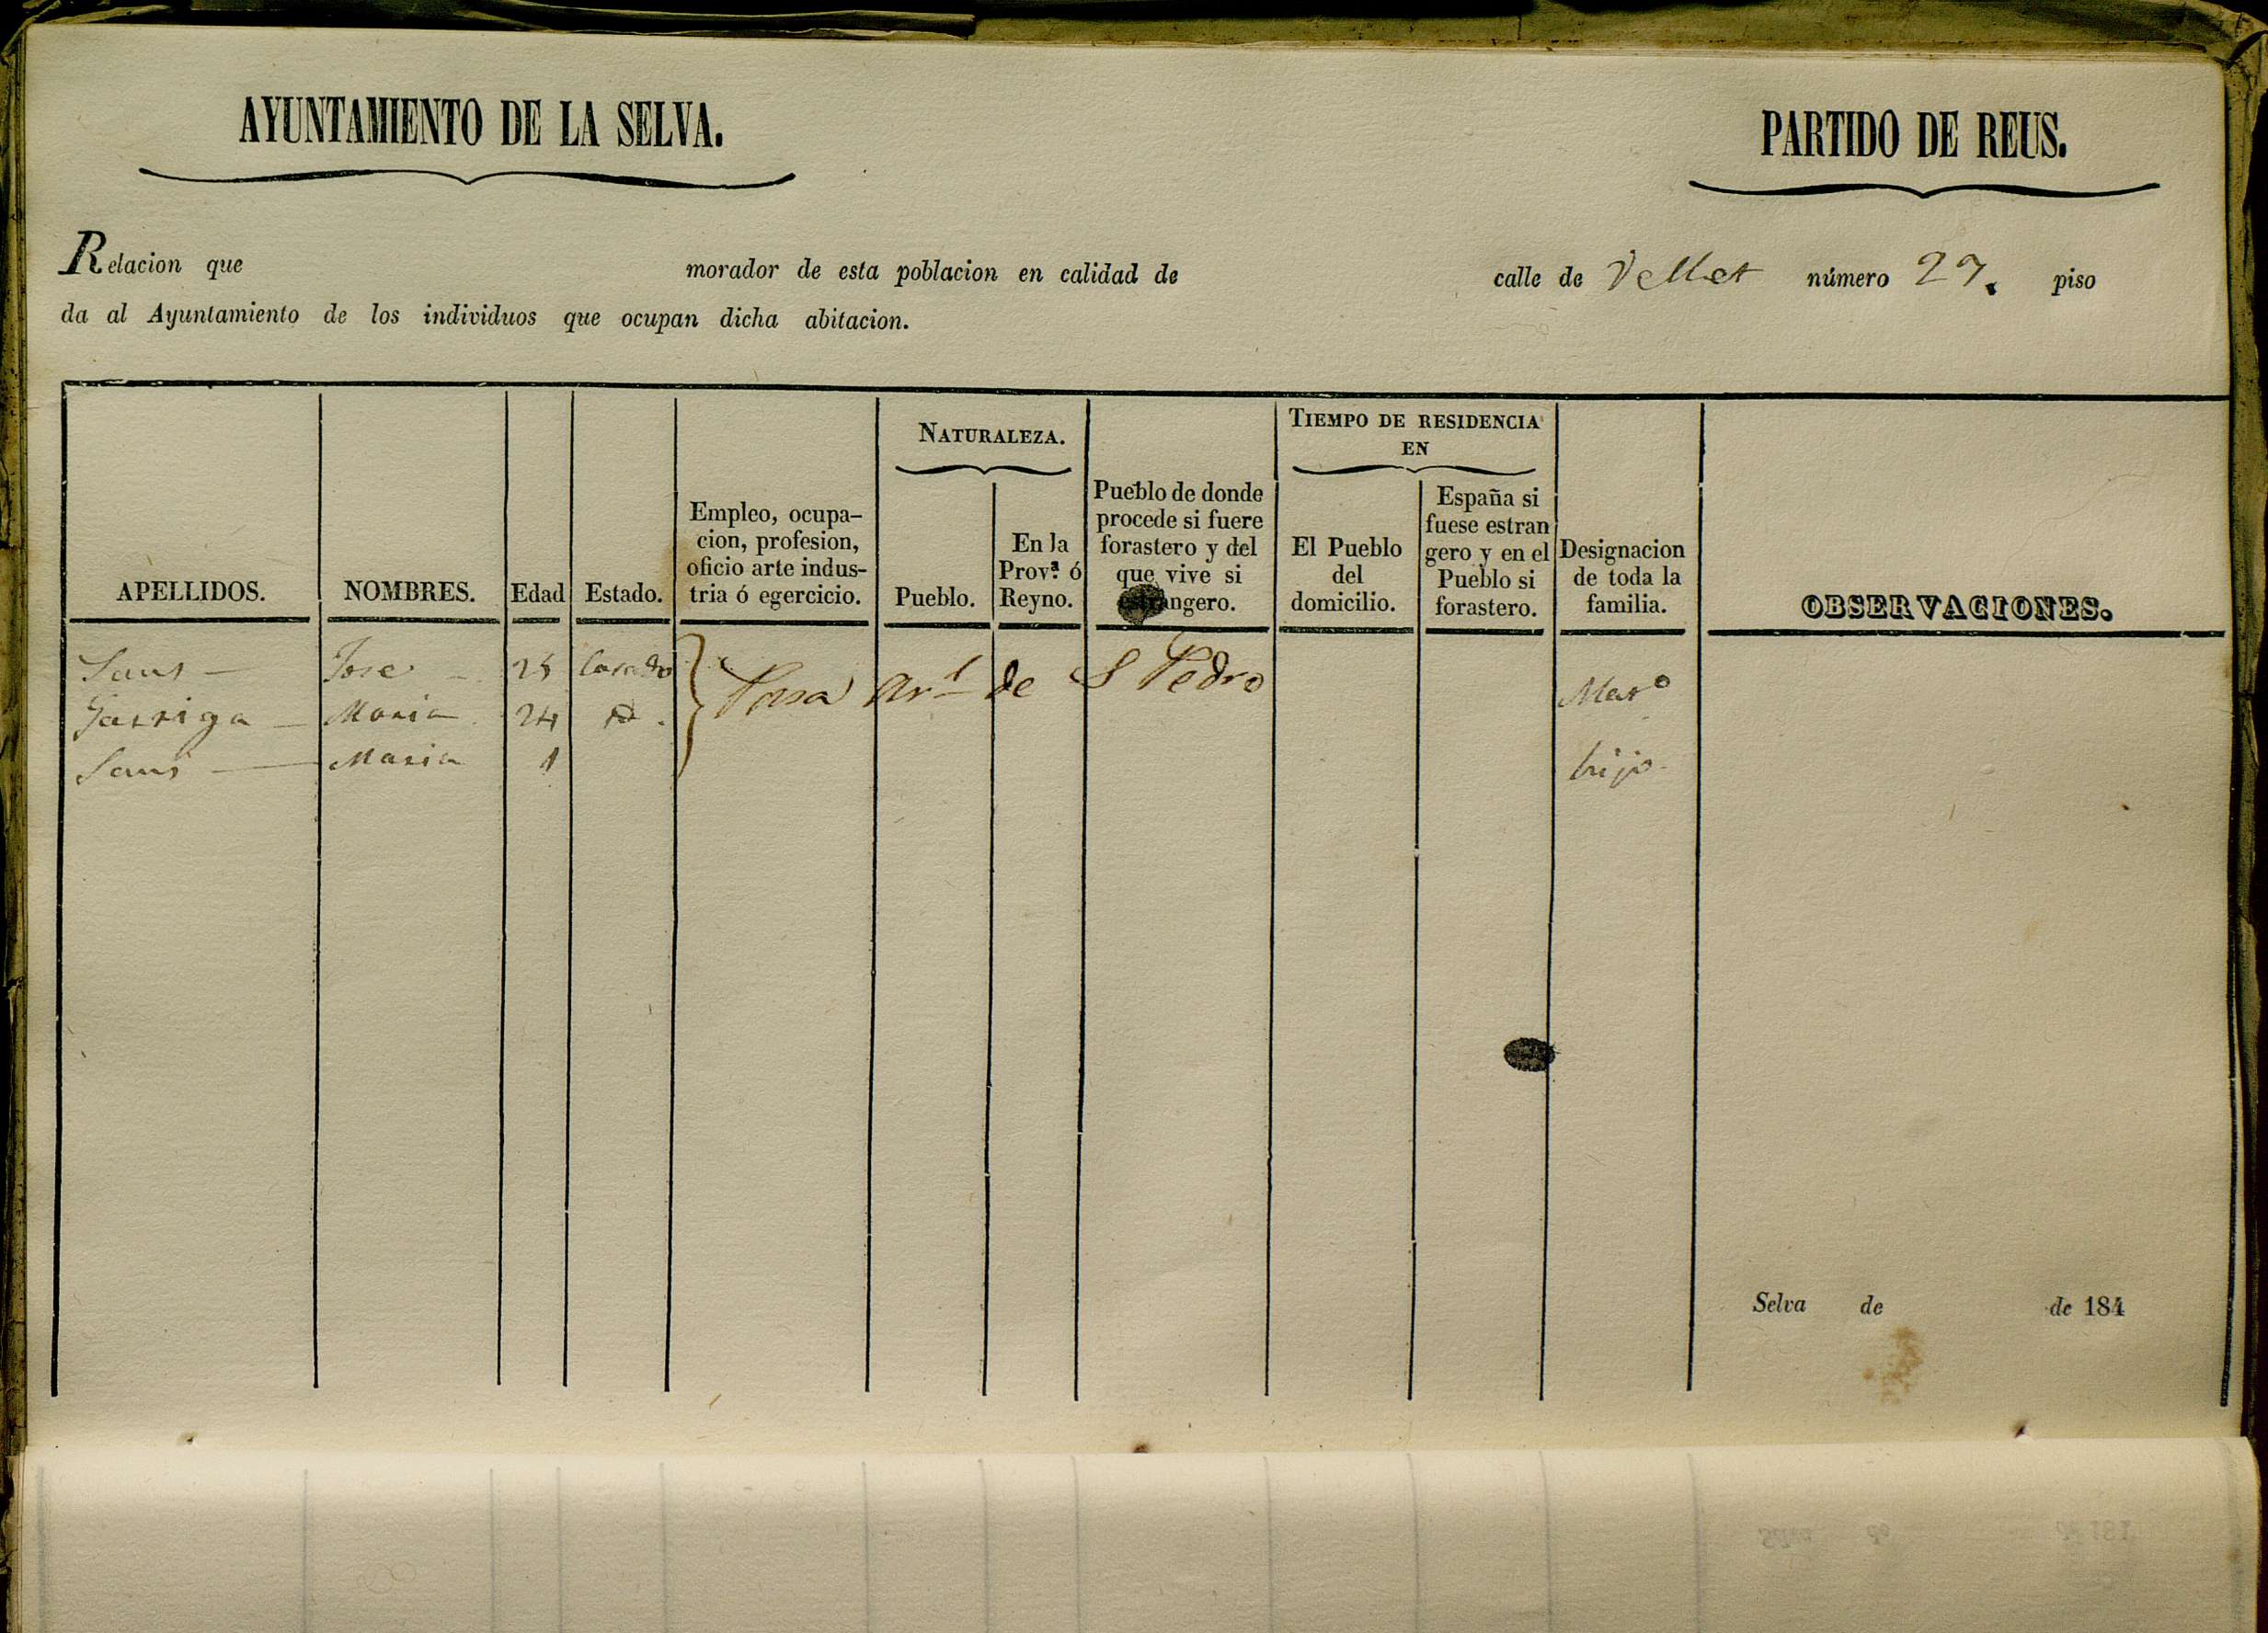 AYUNTAMIENTO DE LA SELVA.
PARTIDO DE REUS.
Relacion que morador de esta poblacion en calidad de calle de Vellet número 27. piso
da al Ayuntamiento de los individuos que ocupan dicha abitacion.
APELLIDOS.
NOMBRES.
Edad
Estado.
Empleo, ocupa-
cion, profesion,
oficio arte indus-
tria ó egercicio.
NATURALEZA.
Pueblo.
En la
Prov.ª ó
Reyno.
Pueblo de donde
procede si fuere
forastero y del
que vive si
estrangero.
TIEMPO DE RESIDENCIA
EN
El Pueblo
del
domicilio.
España si
fuese estran
gero y en el
Pueblo si
forastero.
Designacion
de toda la
familia.
OBSERVACIONES.
Sans — Jose — 25 Casado
Garriga — Maria 24 de S Pedro Mar.º
Sans — Maria 1 hijo
Selva de de 184